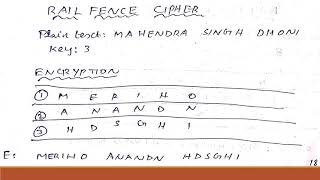 RAIL FENCE CIPHER
Plain text: MAHENDRA SINGH DHONI
Key: 3
ENCRYPTION
① M E R I H O
② A N A N D N
③ H D S G H I
E: MERIHO ANANDN HDSGHI
18